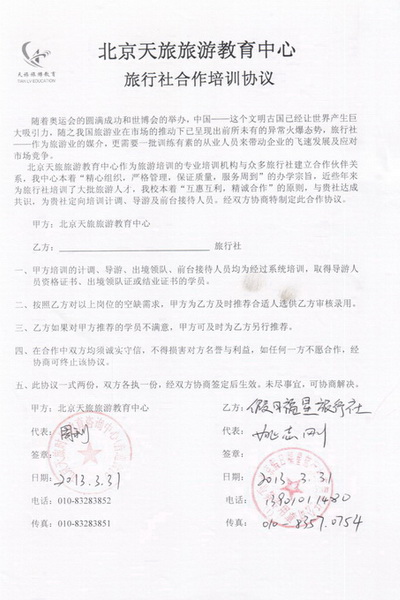 天旅旅游教育
TIAN LV EDUCATION
北京天旅旅游教育中心
旅行社合作培训协议
随着奥运会的圆满成功和世博会的举办，中国——这个文明古国已经让世界产生巨
大吸引力，随之我国旅游业在市场的推动下已呈现出前所未有的异常火爆态势，旅行社
——作为旅游业的媒介，更需要一批训练有素的从业人员来带动企业的飞速发展及应对
市场竞争。
北京天旅旅游教育中心作为旅游培训的专业培训机构与众多旅行社建立合作伙伴关
系，我中心本着“精心组织，严格管理，保证质量，服务周到”的办学宗旨，近些年来
为旅行社培训了大批旅游人才，我校本着“互惠互利，精诚合作”的原则，与贵社达成
共识，为贵社定向培训计调、导游及前台接待人员。经双方协商特制定此合作协议。
甲方：北京天旅旅游教育中心
乙方：旅行社
一、甲方培训的计调、导游、出境领队、前台接待人员均为经过系统培训，取得导游人
员资格证书、出境领队证或结业证书的学员。
二、按照乙方对以上岗位的空缺需求，甲方为乙方及时推荐合适人选供乙方审核录用。
三、乙方如果对甲方推荐的学员不满意，甲方可及时为乙方另行推荐。
四、在合作中双方均须诚实守信，不得损害对方名誉与利益，如任何一方不愿合作，经
协商可终止该协议。
五、此协议一式两份，双方各执一份，经双方协商签定后生效。未尽事宜，可协商解决。
甲方：北京天旅旅游教育中心 乙方：假日福星旅行社
代表：周利 代表：姚志刚
签章： 签章：
日期：2013.3.31 日期：2013.3.31
电话：010-83283852 电话：
传真：010-83283851 传真：010-8357.0754